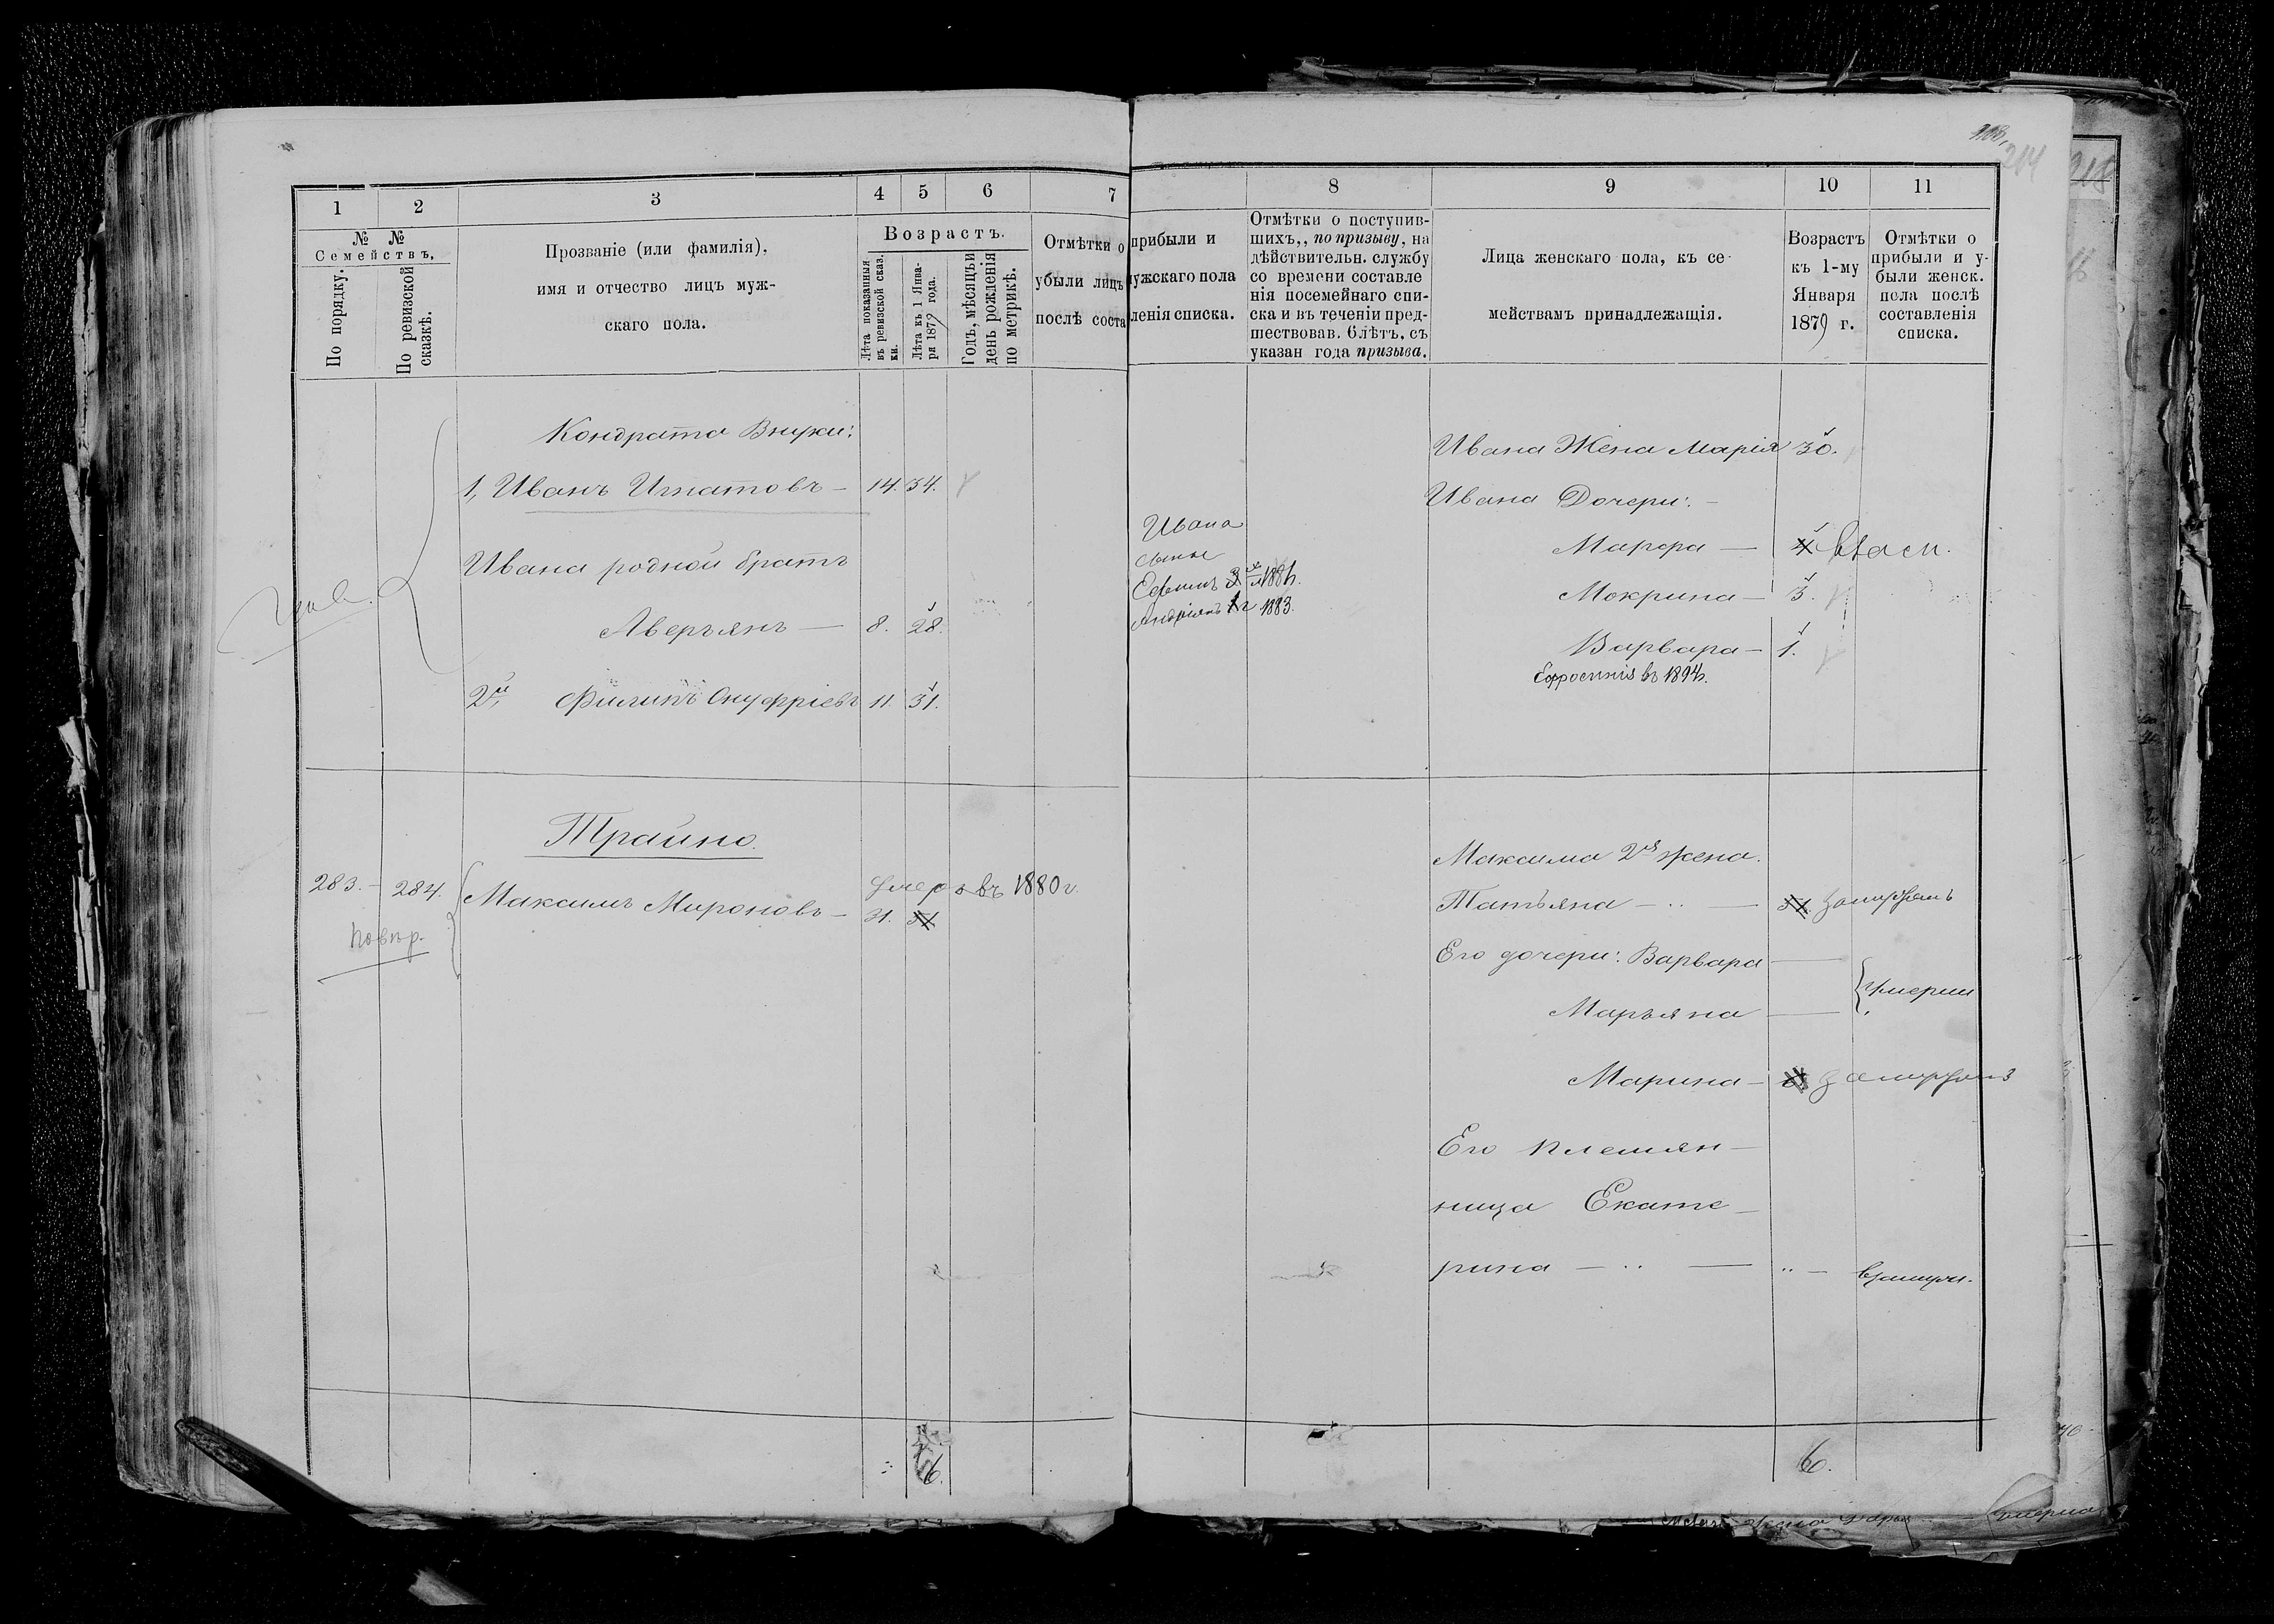 214
318
1 2 3 4 5 6 7 8 9 10 11
№ №
Семействъ.
По порядку.
По ревизской сказкѣ.
Прозваніе (или фамилія),
имя и отчество лицъ муж-
скаго пола.
Возрастъ.
Лѣта показанныя
въ ревизской сказ.
ки.
Лѣта къ 1 Янва-
ря 1879 года.
Годъ, мѣсяцъ и
день рожденія
по метрикѣ.
Отмѣтки о прибыли и
убыли лицъ мужскаго пола
послѣ составленія списка.
Отмѣтки о поступив-
шихъ,, по призыву, на
дѣйствительн. службу
со времени составле
нія посемейнаго спи-
ска и въ теченіи пред-
шествовав. 6 лѣтъ, съ
указан года призыва.
Лица женскаго пола, къ се-
мействамъ принадлежащія.
Возрастъ
къ 1-му
Января
1879 г.
Отмѣтки о
прибыли и у-
были женск.
пола послѣ
составленія
списка.
Кондрата Внуки:
1, Иванъ Игнатовъ — 14. 34.
Ивана родной братъ
Аверьянъ — 8. 28.
2й, Филипъ Онуфріевъ 11. 31.
Ивана
сыны
Ефимъ 1881.
Андріянъ 1883.
Ивана Жена Марія 30.
Ивана Дочери: —
Марфа —
Мокрина — 3.
Варвара — 1.
Ефросинія въ 1894.
Трайно.
283. — 284. Максимъ Мироновъ — 31.
умеръ въ 1880 г.
Максима 2я жена.
Татьяна — замужемъ
Его дочери: Варвара —
Марьяна — умерли
Марина — замужемъ
Его племян—
ница Екате—
рина — взамужи.
6.
6.